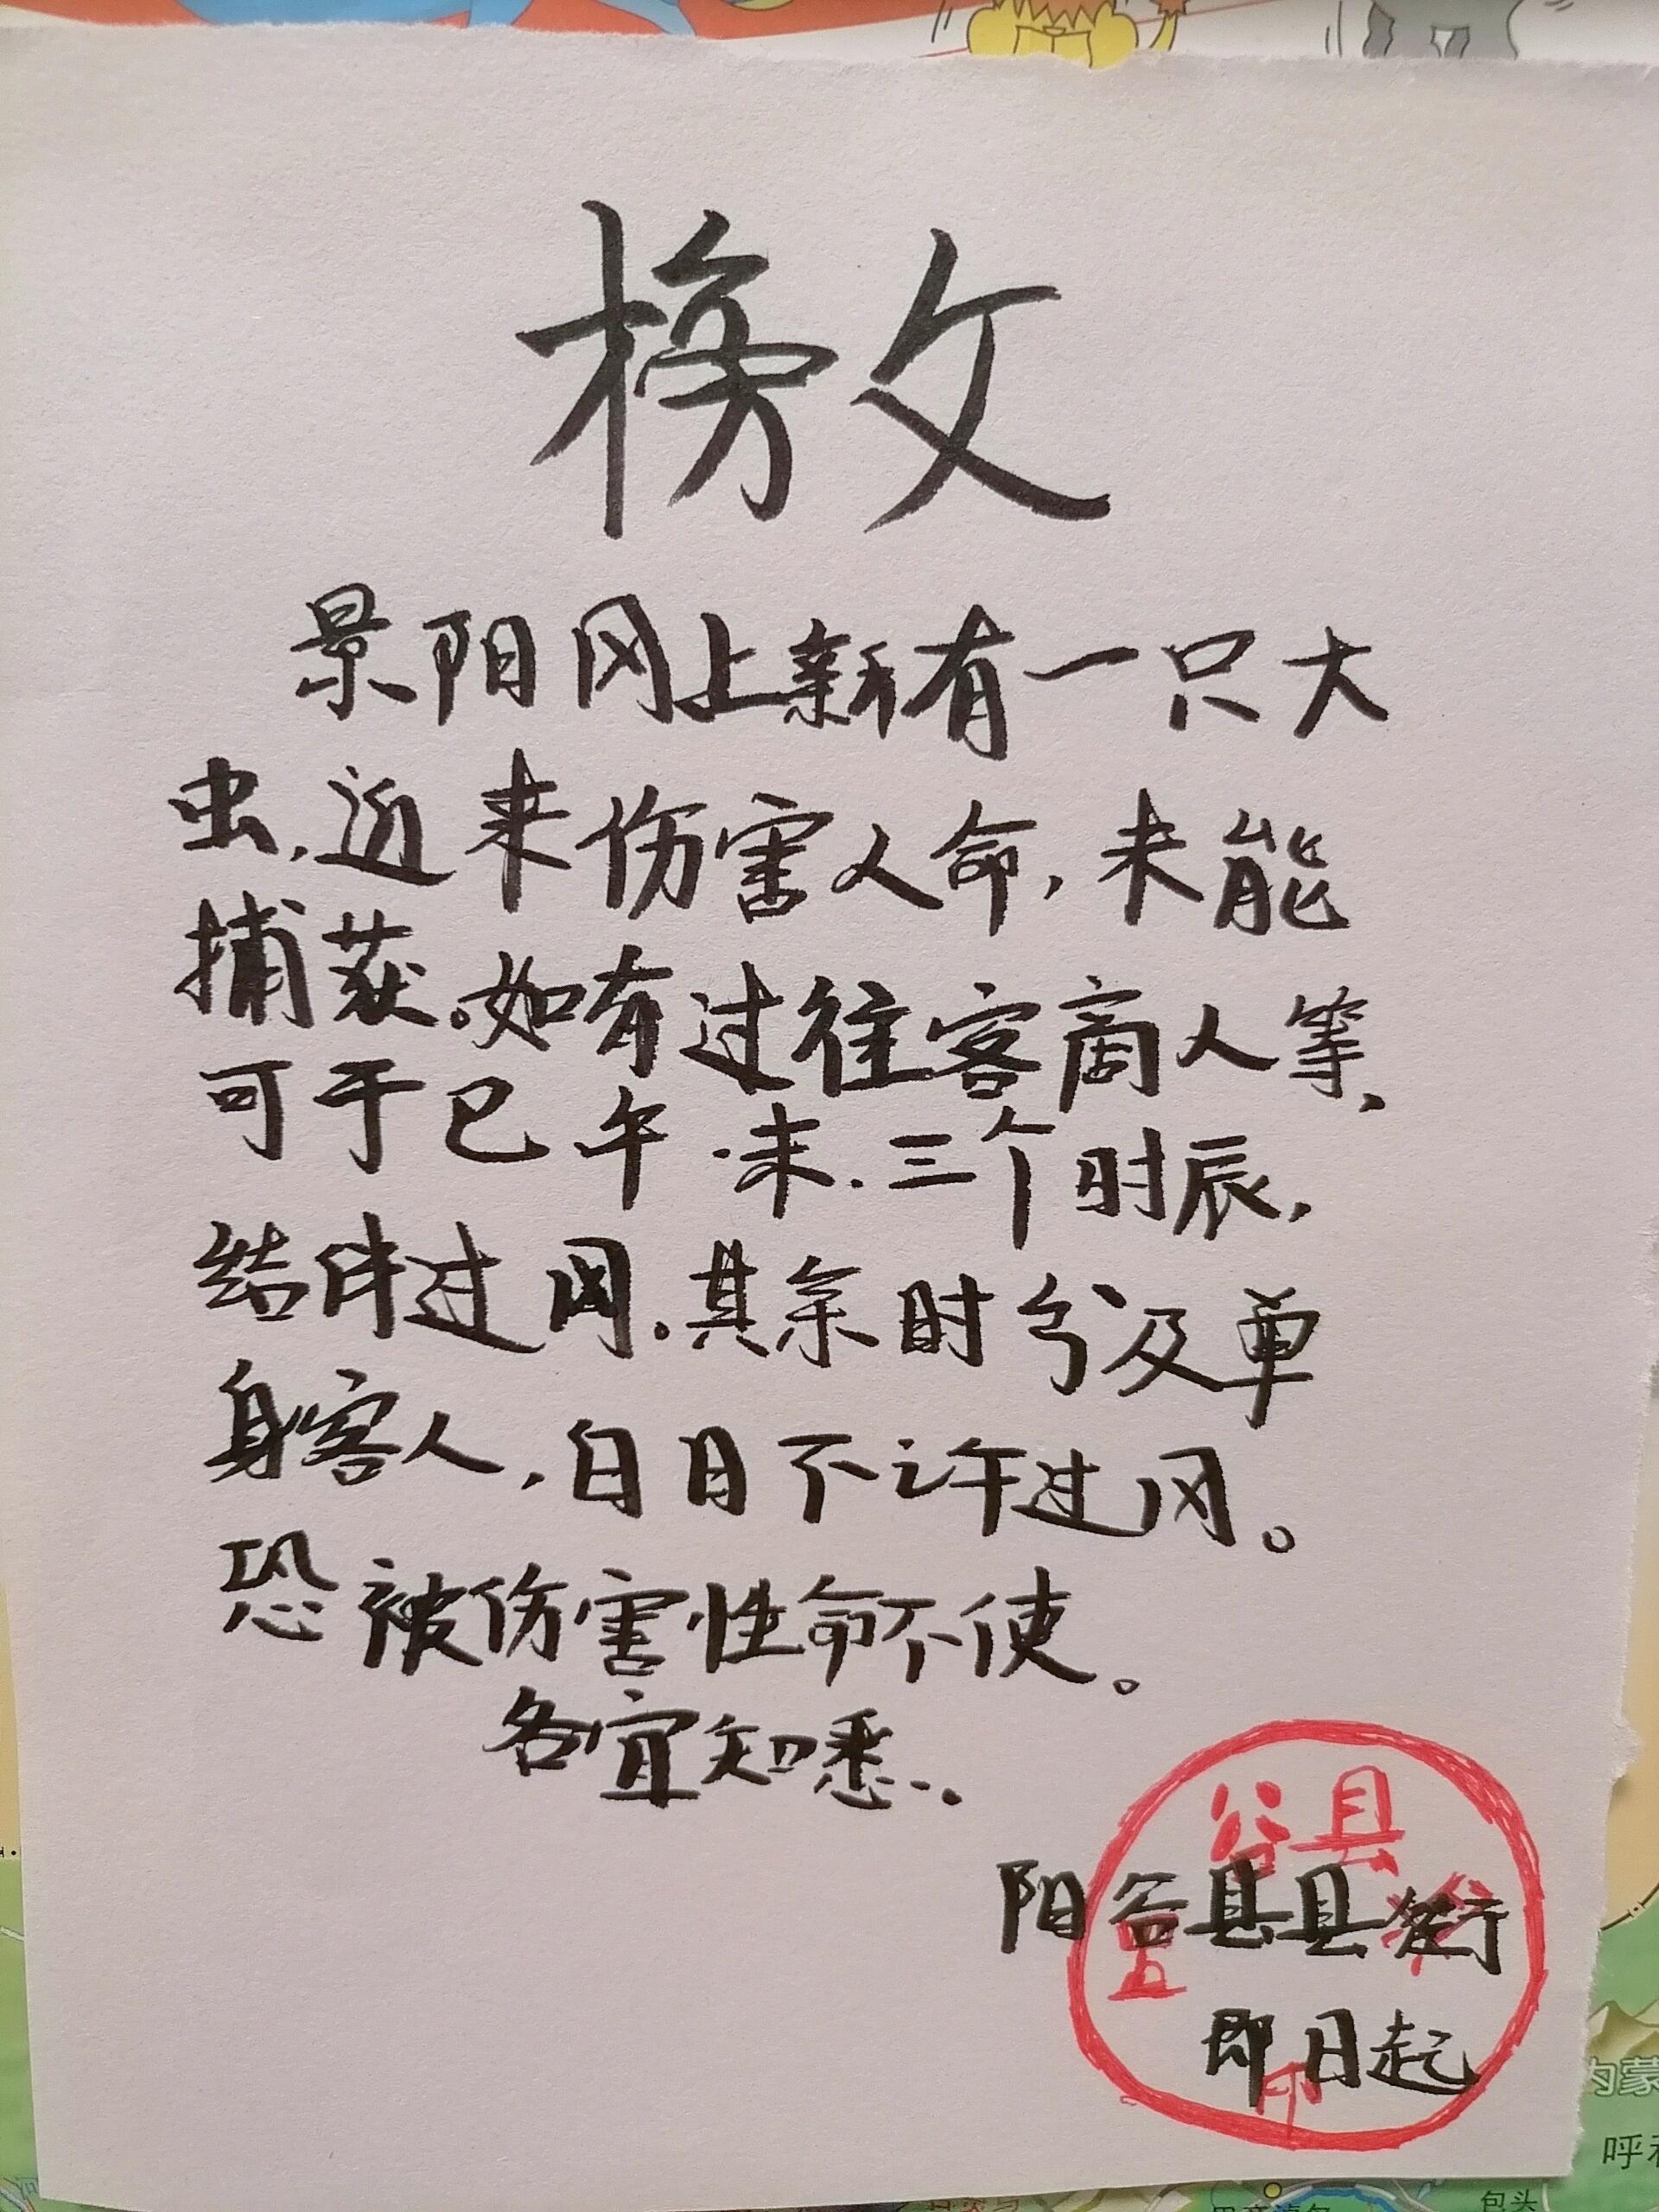 榜文
景阳冈上新有一只大
虫,近来伤害人命,未能
捕获。如有过往客商人等,
可于巳、午、未、三个时辰,
结伴过冈。其余时分及单
身客人,白日不许过冈。
恐被伤害性命不便。
各宜知悉。
谷县
阳谷县县衙
即日起
印
内蒙
呼和
包头